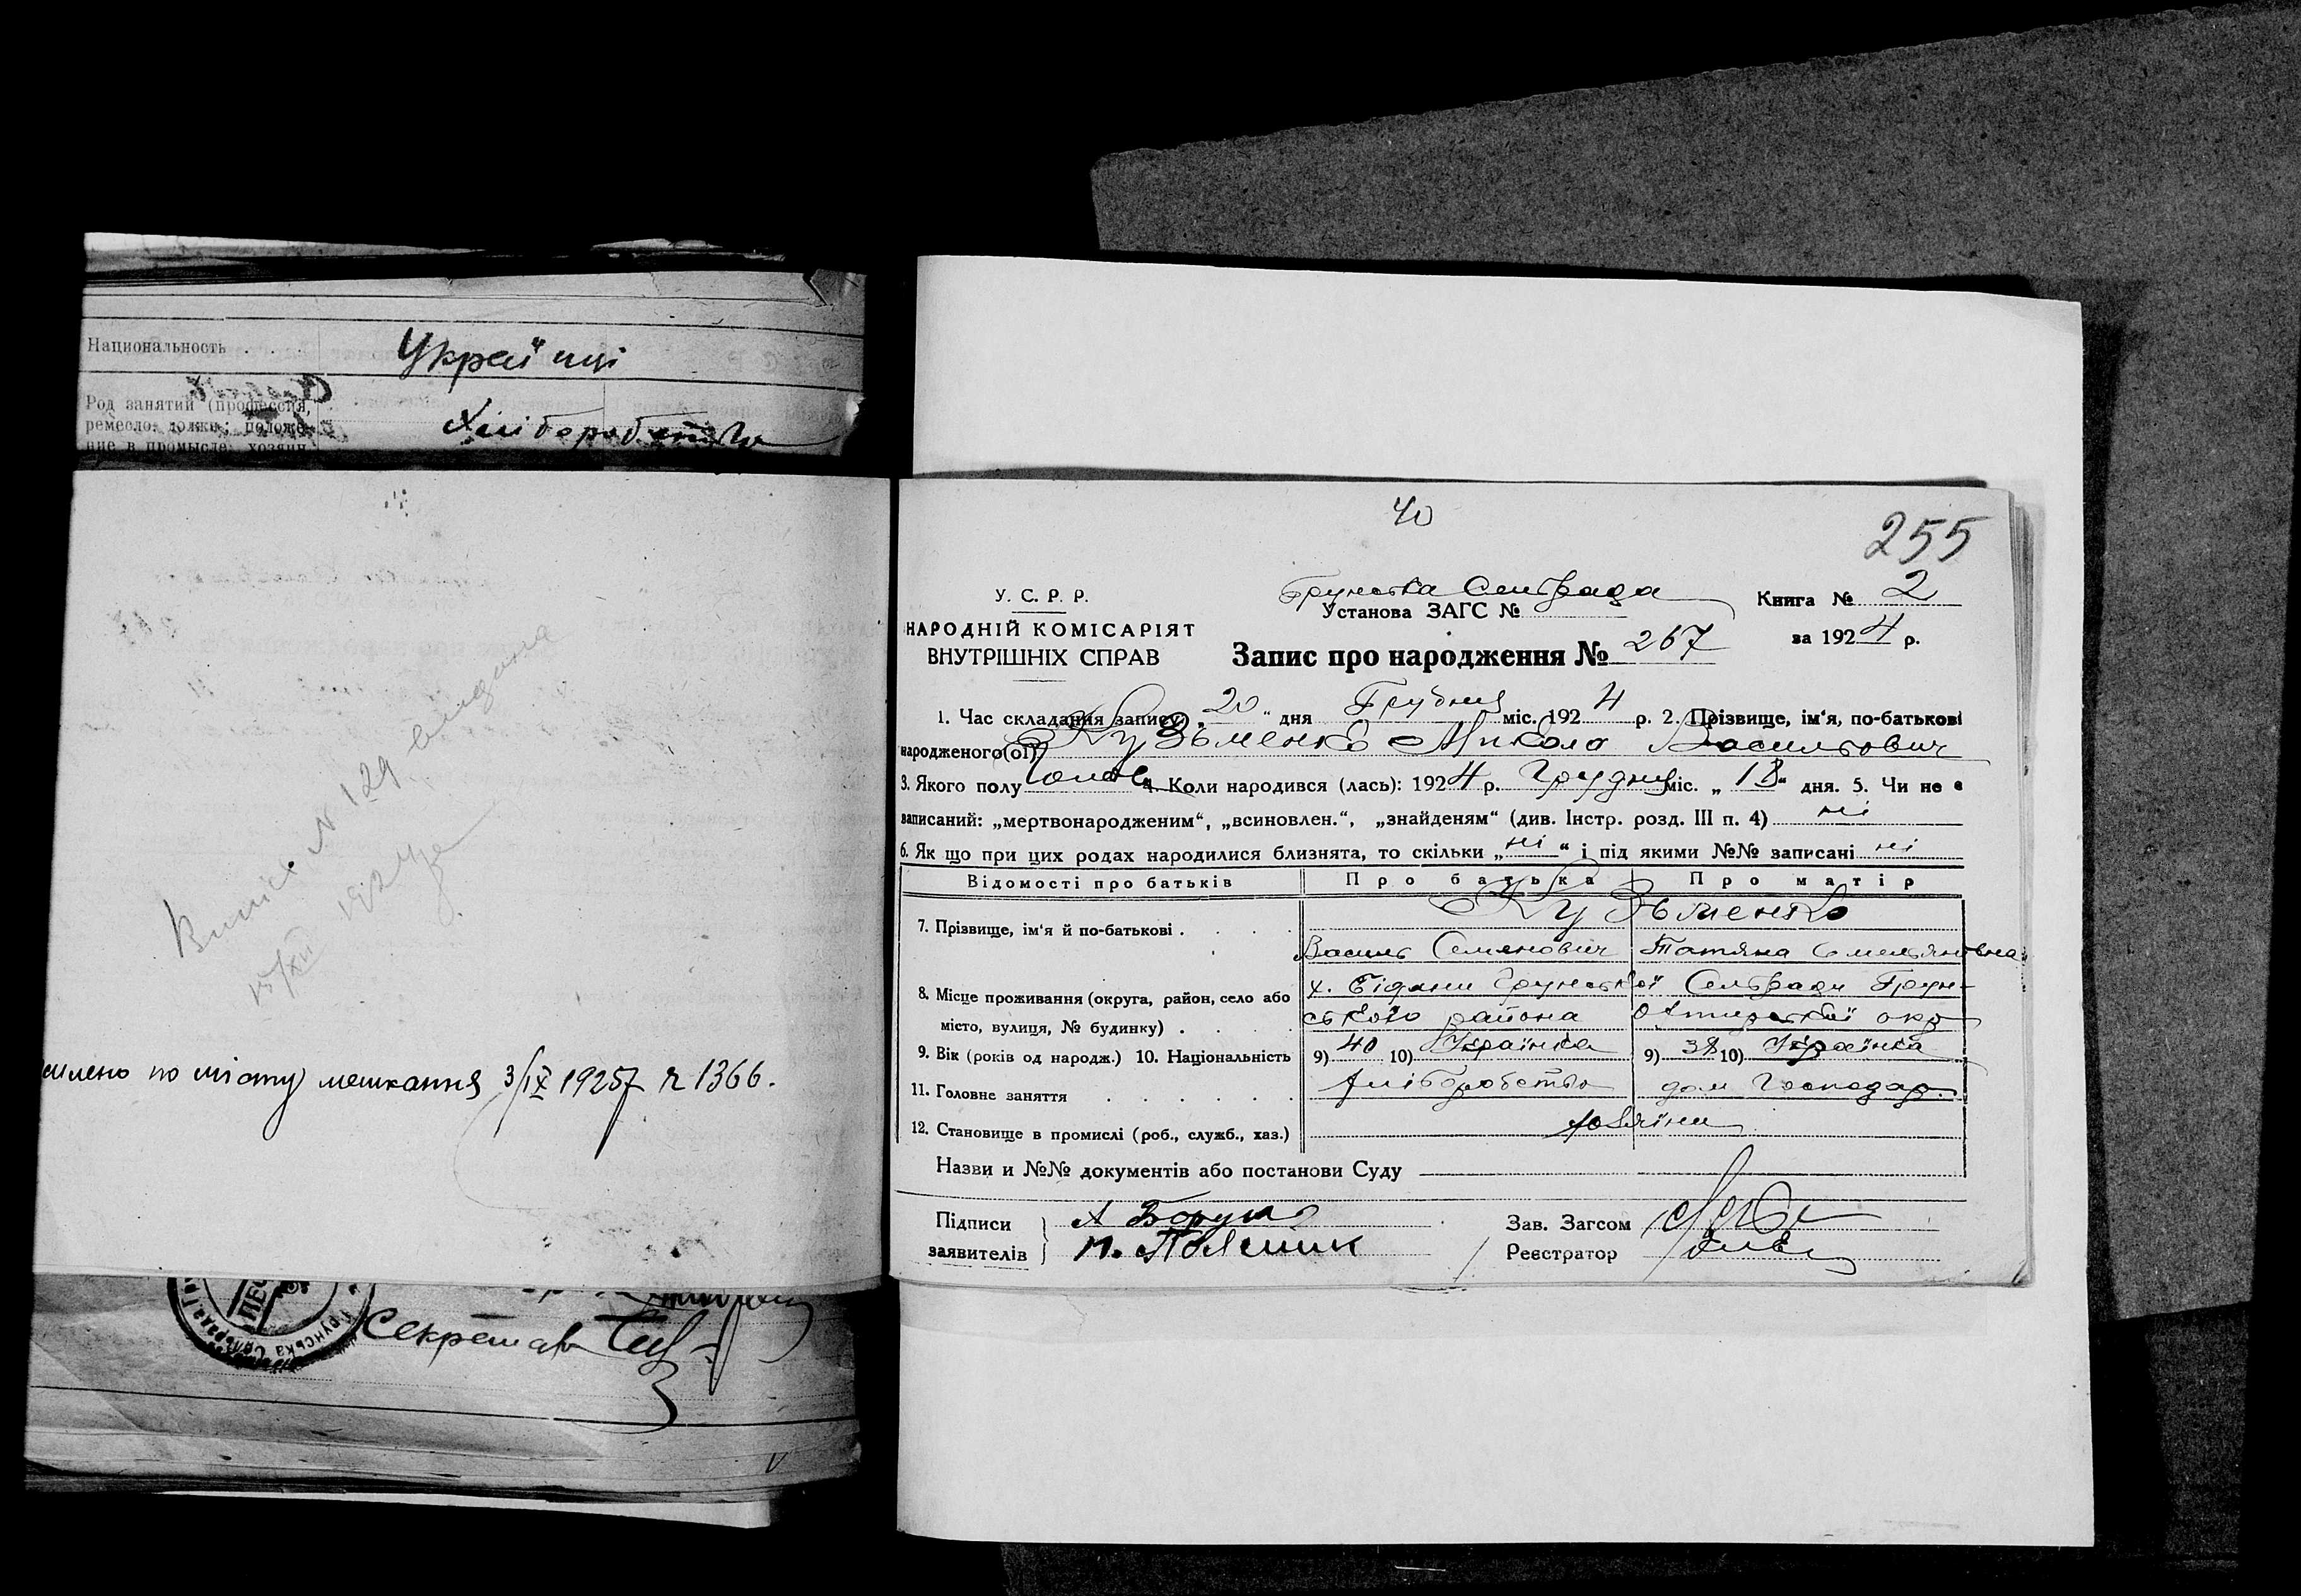 Национальность . . . Українці
Род занятий (профессия,
ремесло, должн; положе-
ние в промысле: хозяин,
Хліборобство
Випис N 129 видана
15/XII 1924
мешкання 3/IX 1925 r 1366.
Секретар
Грунська Сільрада
40
255
У. С. Р. Р.
НАРОДНІЙ КОМІСАРІЯТ
ВНУТРІШНІХ СПРАВ
Грунська Сельрада
Установа ЗАГС №
Книга № 2
за 1924 р.
Запис про народження № 267
1. Час складання запису „20“ дня Грудня міс. 1924 р. 2. Прізвище, ім‘я, по-батькові
народженого(ої) Кузьменко Микола Васильович
3. Якого полу чолов 4. Коли народився (лась): 1924 р. Грудня міс. „18“ дня. 5. Чи не є
записаний: „мертвонародженим“, „всиновлен.“, „знайденям“ (див. Інстр. розд. III п. 4) ні
6. Як що при цих родах народилися близнята, то скільки „ні“ і під якими №№ записані ні
Відомості про батьків Про батька Про матір
7. Прізвище, ім‘я й по-батькові . Кузьменко
Василь Семенович Татяна Омельяновна
8. Місце проживання (округа, район, село або
місто, вулиця, № будинку) .
х. Бідани Грунської Сельради Грун-
ського района Охтирської окр
9. Вік (років од народж.) 10. Національність 9) 40 10) Українка 9) 38 10) Українка
11. Головне заняття Хліборобство дом Господар.
12. Становище в промислі (роб., служб., хаз.) хозяїни
Назви и №№ документів або постанови Суду
Підписи
заявителів
А Борул
П. Полєшик
Зав. Загсом
Реєстратор